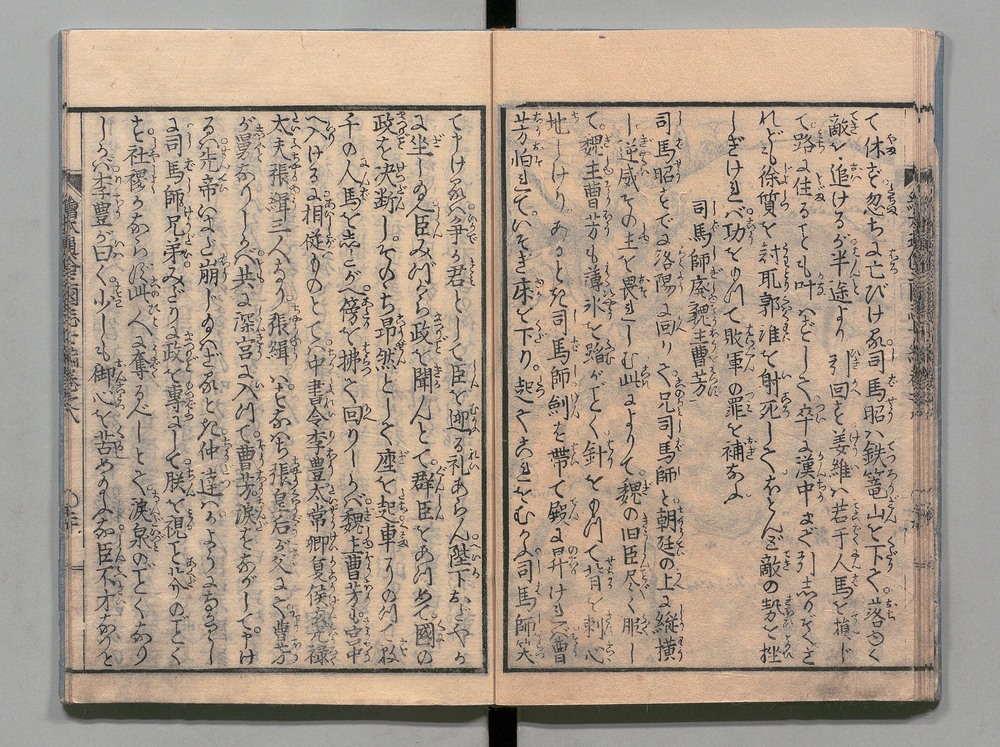 て休ず忽ちに亡びける司馬昭ハ鉄篭山を下て落ゆく
敵を追けるが半途より引回す姜維ハ若干人馬を損じ
て路に住ることも叶ハずして卒に漢中まで引しりぞき
れども徐質を討取郭淮を射死してほとんど敵の勢を挫
しぎけれバ功をもつて敗軍の罪を補なふ
司馬師廃魏主曹芳
司馬昭すでに洛陽に回りて兄司馬師と朝廷の上に縦横
し逆威その主を畏れしむ此によりて魏の旧臣尽く服し
て魏主曹芳も薄氷を踏がごとく針をもつて背を刺心
地しけりあるとき司馬師剣を帯て殿に昇けれバ曹
芳怕れていそぎ床を下り起てこれをむかふ司馬師笑
て申けるハ争か君として臣を迎る礼あらん陛下おだやか
に坐し給へ臣みづから政を聞んとて群臣をあつめて國の
政を決断しそのゝち昂然として座を起車にのつて数
千の人馬をしたがへ傍を拂て回りしかバ魏主曹芳も宮中
へ入けるに相従ものとてハ中書令李豊太常卿夏侯玄光禄
太夫張緝三人なり張緝ハすなハち張皇后が父にて曹芳
が舅なりしかバ共に深宮に入つて曹芳涙をながして申け
るハ先帝いまだ崩じ給ハざるとき仲達ハ
に司馬師兄弟みだりに政を専にして朕を視こと
を社稷かならず此人に奪るべしとて涙泉のごとくなり
しかバ李豊が曰く少しも御心を苦め給ふな臣不才なりと